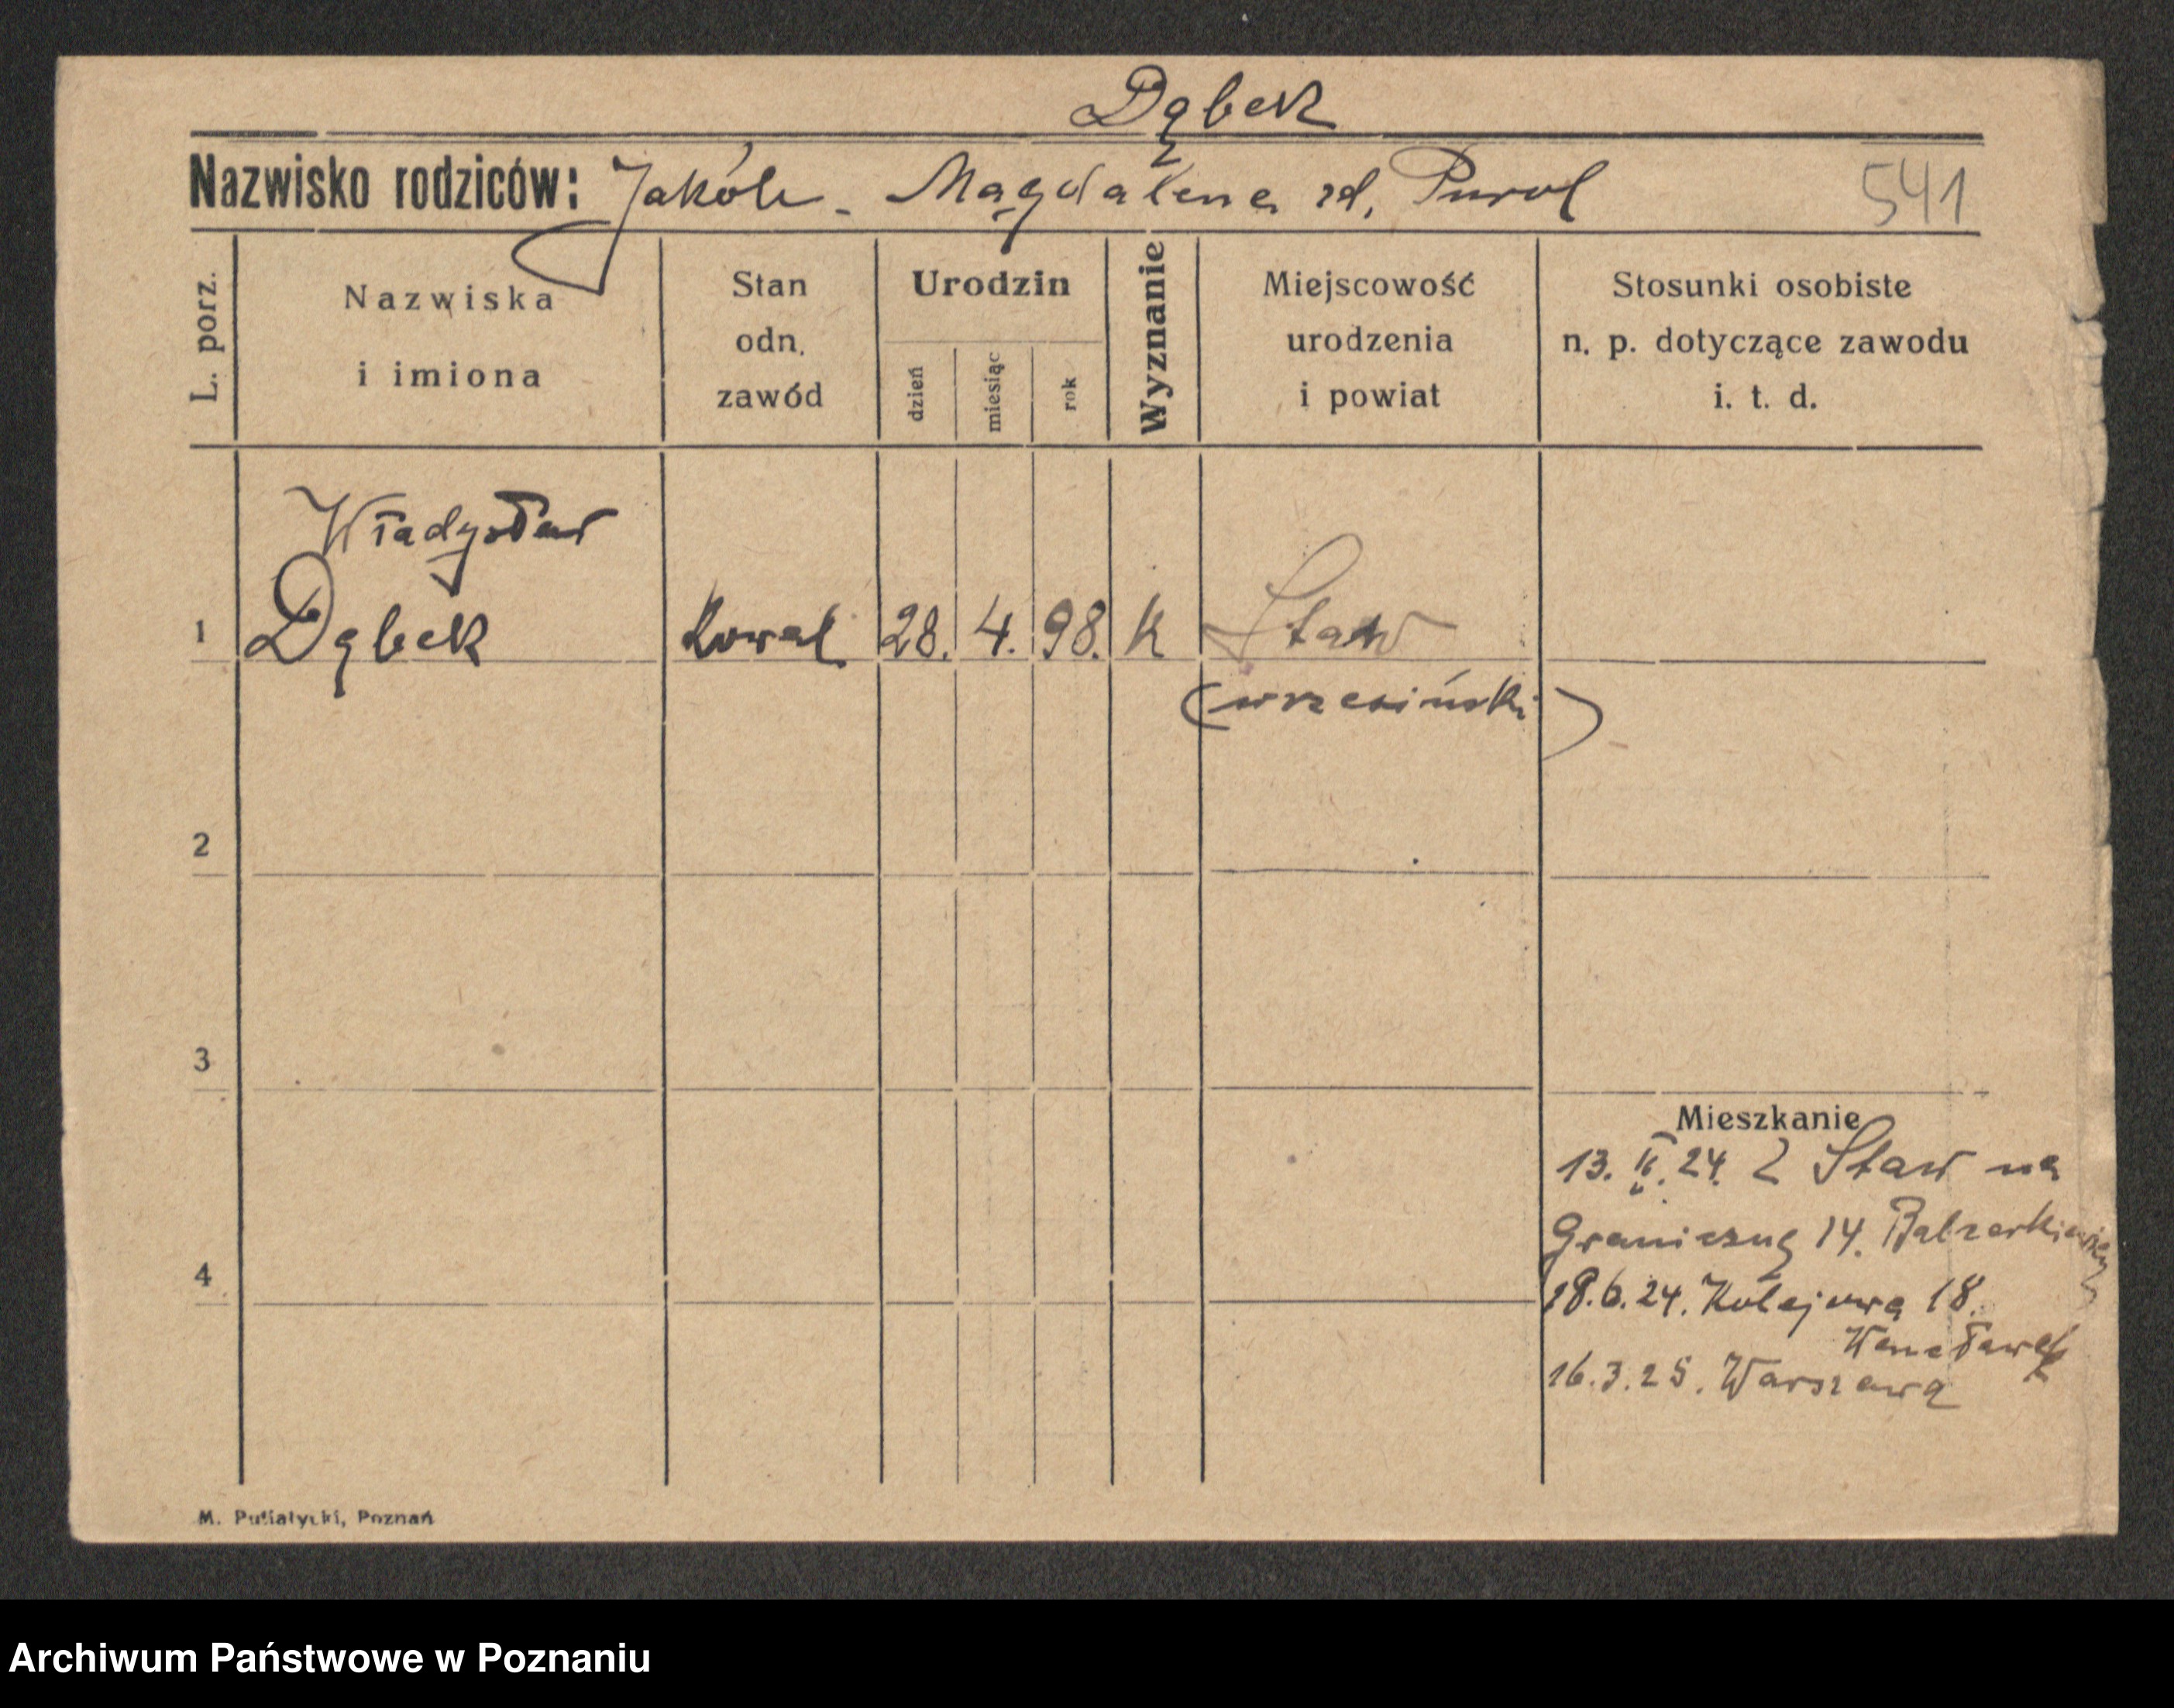 Dąbek
Nazwisko rodziców: Jakób - Magdalena rd. Purol
541
L. porz.
Nazwiska
i imiona
Stan
odn.
zawód
Urodzin
dzień
miesiąc
rok
Wyznanie
Miejscowość
urodzenia
i powiat
Stosunki osobiste
n. p. dotyczące zawodu
i. t. d.
Władysław
1 Dąbek kowal 28. 4. 98. K Staw
(wrzesiński)
2
3
Mieszkanie
13. II. 24. Z Staw na
4 Graniczną 14. Balzerkiewicz
18.6.24. Kolejowa 18.
16.3.25. Warszawa
M. Putiatycki, Poznań
Archiwum Państwowe w Poznaniu